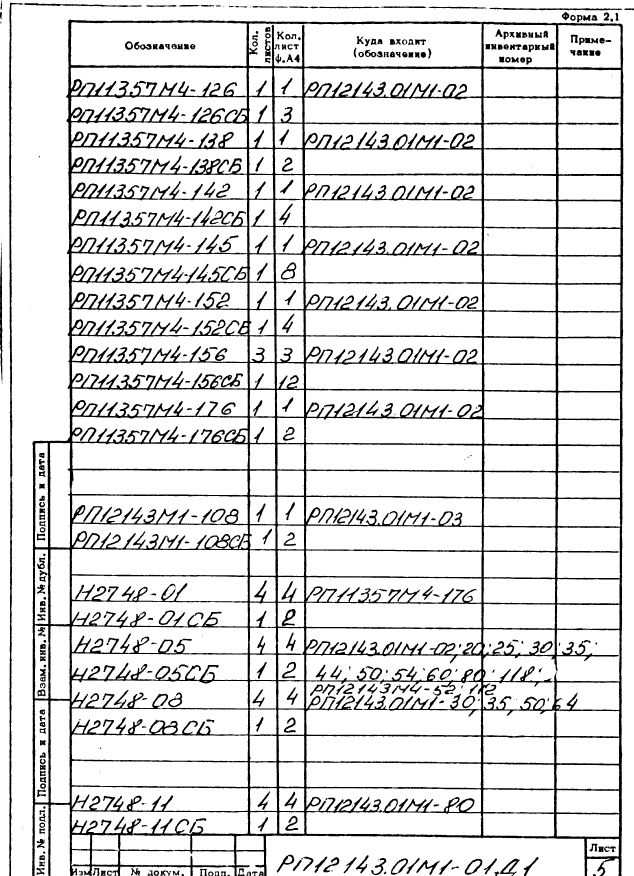 Форма 2,1
Обозначение Кол. листов Кол. лист ф.А4 Куда входит (обозначение) Архивный инвентарный номер Примечание
РП11357М4-126 1 1 РП12143.01М1-02
РП11357М4-126СБ 1 3
РП11357М4-138 1 1 РП12143.01М1-02
РП11357М4-138СБ 1 2
РП11357М4-142 1 1 РП12143.01М1-02
РП11357М4-142СБ 1 4
РП11357М4-145 1 1 РП12143.01М1-02
РП11357М4-145СБ 1 8
РП11357М4-152 1 1 РП12143.01М1-02
РП11357М4-152СБ 1 4
РП11357М4-156 3 3 РП12143.01М1-02
РП11357М4-156СБ 1 12
РП11357М4-176 1 1 РП12143.01М1-02
РП11357М4-176СБ 1 2
РП12143М1-108 1 1 РП12143.01М1-03
РП12143М1-108СБ 1 2
Н2748-01 4 4 РП11357М4-176
Н2748-01СБ 1 2
Н2748-05 4 4 РП12143.01М1-02; 20; 25; 30; 35;
Н2748-05СБ 1 2 44; 50; 54; 60; 80; 118;
РП12143М4-52; 112
Н2748-08 4 4 РП12143.01М1-30; 35, 50; 64
Н2748-08СБ 1 2
Н2748-11 4 4 РП12143.01М1-80
Н2748-11СБ 1 2
Подпись и дата
Инв. № дубл.
Взам. инв. №
Подпись и дата
Инв. № подл.
Изм Лист № докум. Подп. Дата
РП12143.01М1-01.Д1
Лист
5